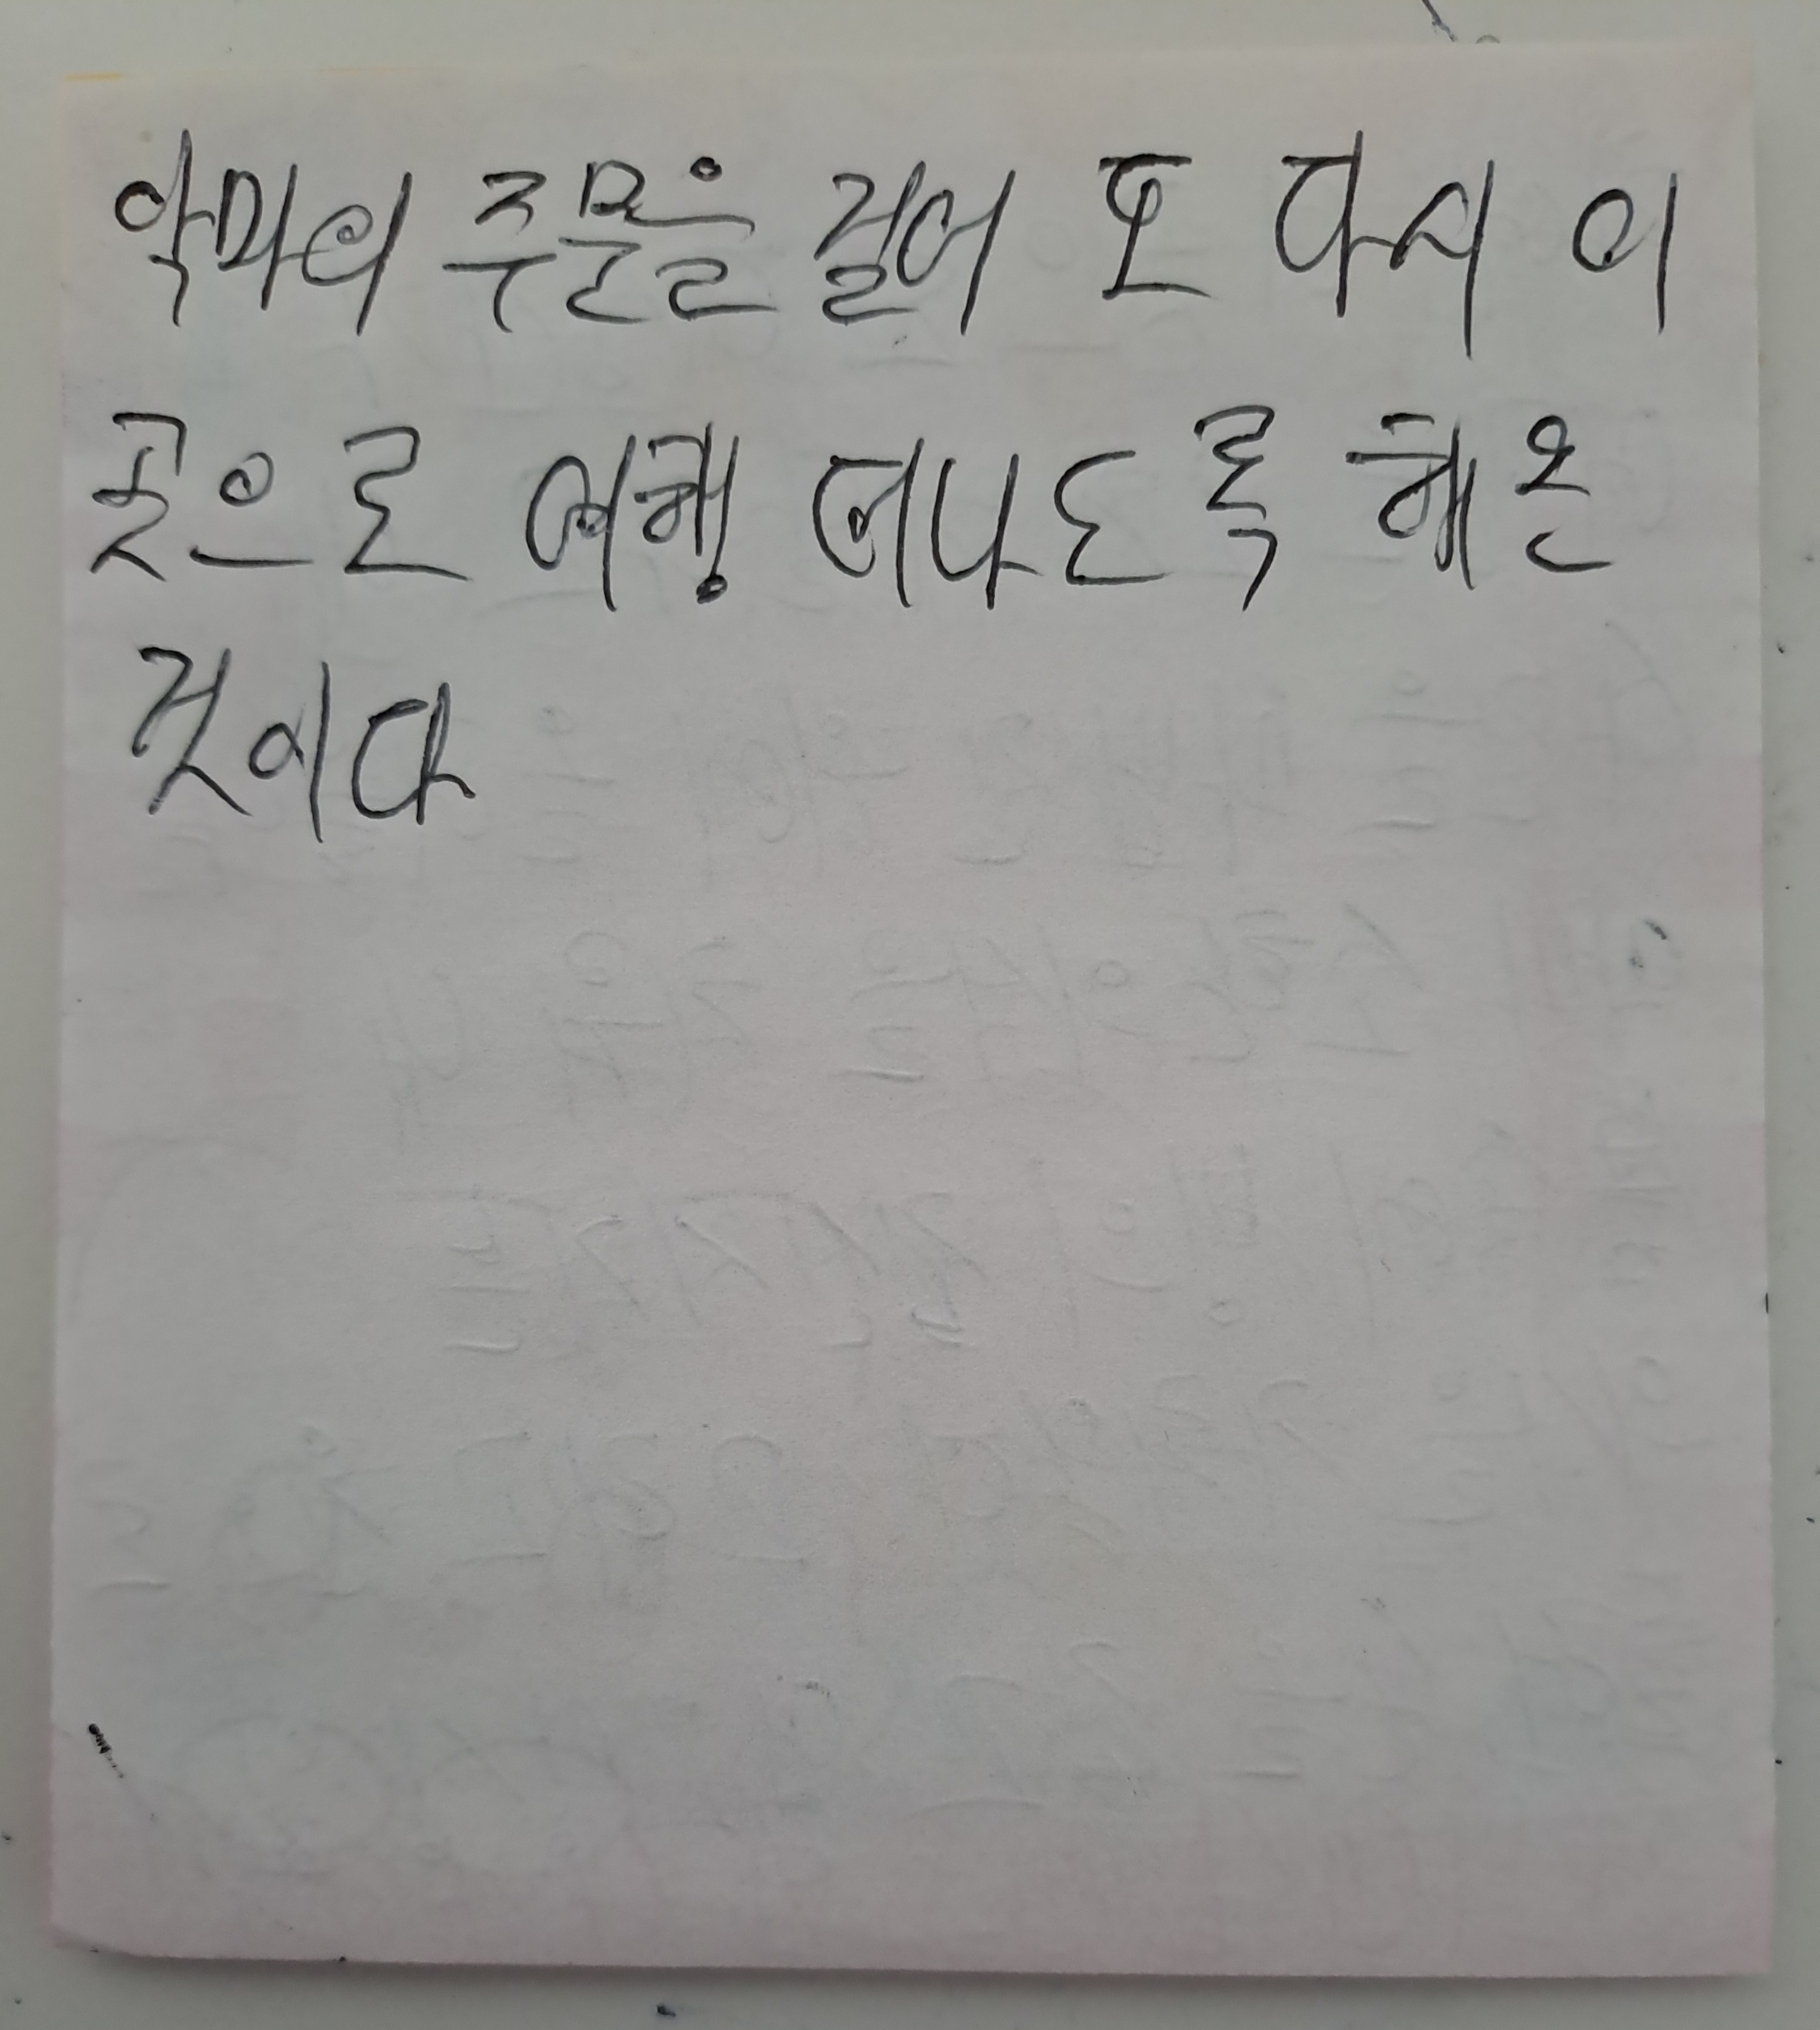 악마의 주문을 걸어 또 다시 이
곳으로 여행 떠나도록 해 온
것이다